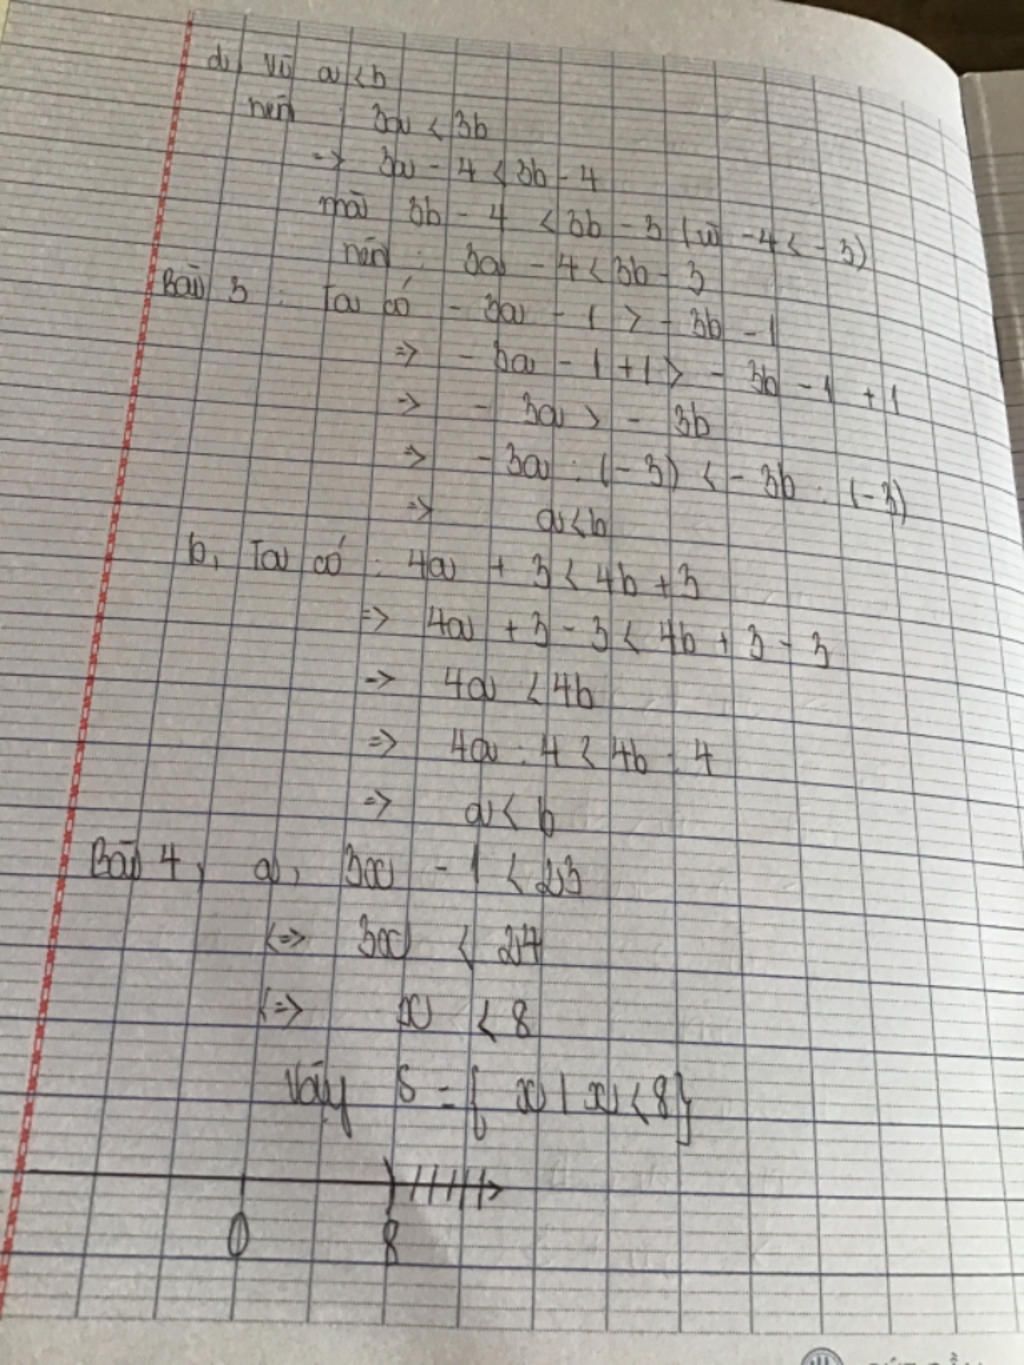 d, Vì a < b
nên : 3a < 3b
=> 3a - 4 < 3b - 4
mà 3b - 4 < 3b - 3 (vì -4 < -3)
nên : 3a - 4 < 3b - 3
Bài 3 : Ta có - 3a - 1 > - 3b - 1
=> - 3a - 1 + 1 > - 3b - 1 + 1
=> - 3a > - 3b
=> - 3a : (-3) < - 3b : (-3)
=> a < b
b, Ta có : 4a + 3 < 4b + 3
=> 4a + 3 - 3 < 4b + 3 - 3
=> 4a < 4b
=> 4a : 4 < 4b : 4
=> a < b
Bài 4, a, 3x - 1 < 23
<=> 3x < 24
<=> x < 8
Vậy S = { x | x < 8}
0 8